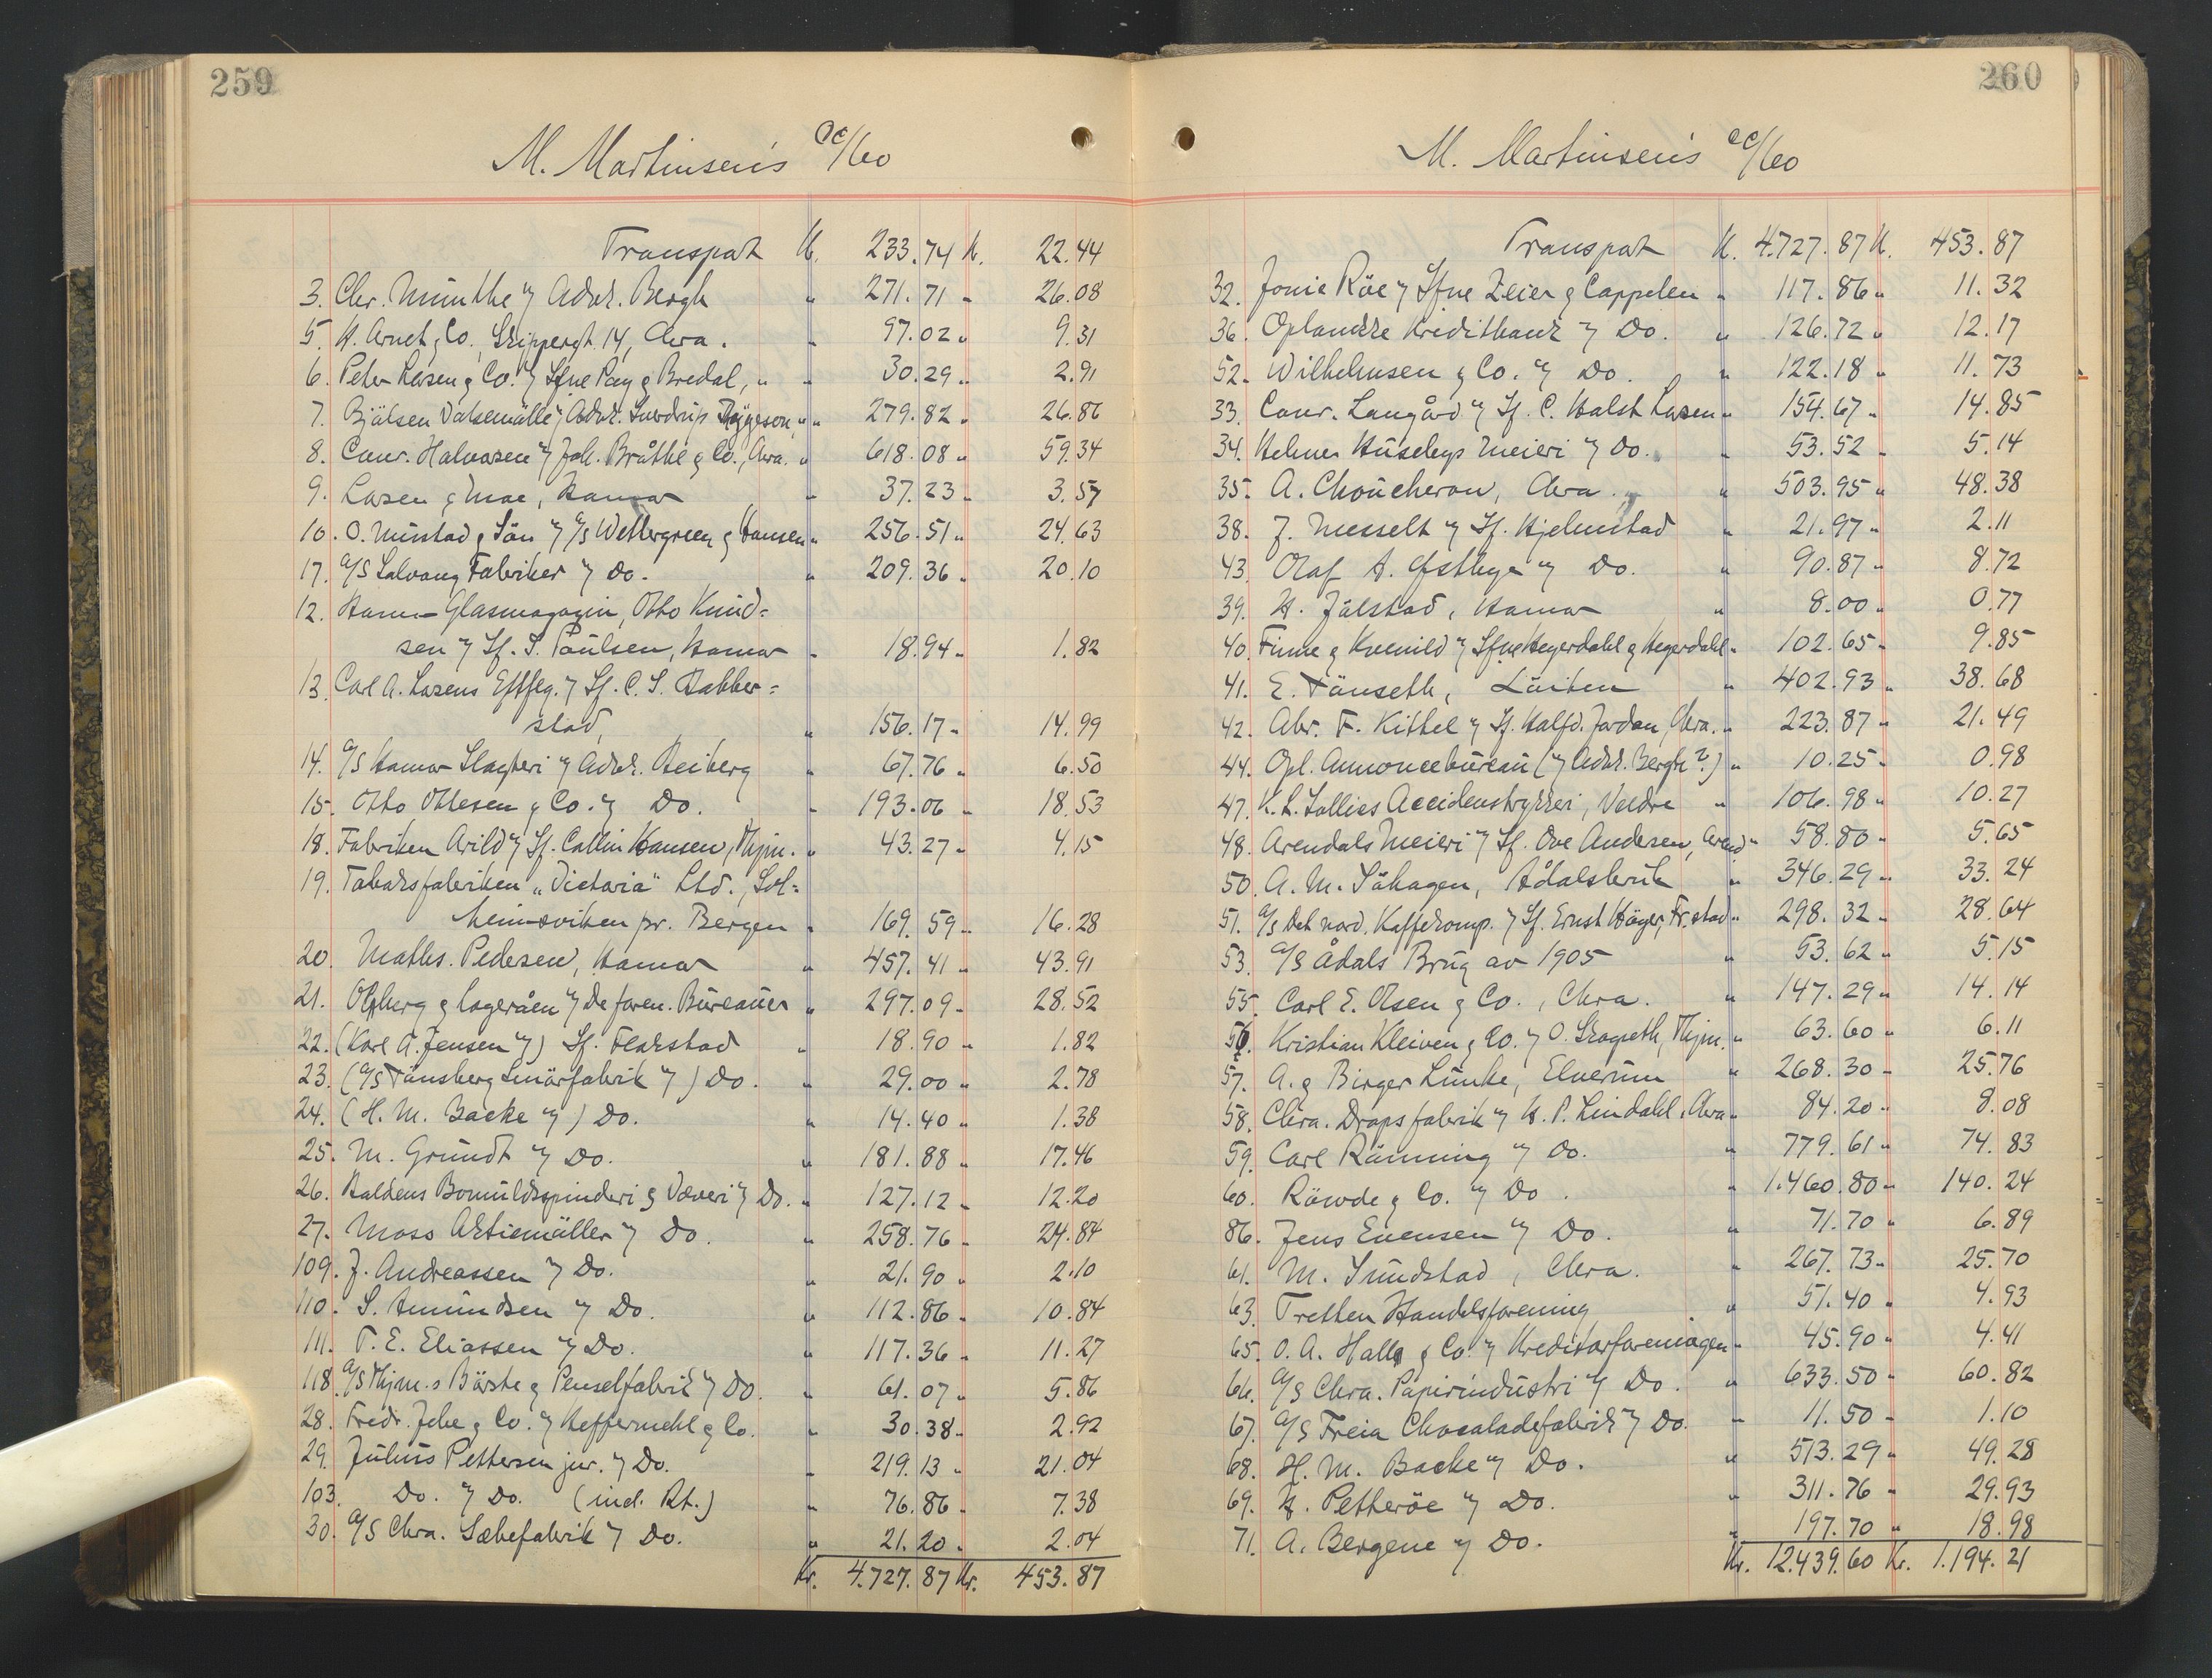 259
M. Martinsen's cc/60
Transport Kr. 233.74 Kr. 22.44
3. Chr. Munthe v/ Advk. Bergh " 271.71 " 26.08
5. H. Arnet & Co., Skippergt. 14, Chra. " 97.02 " 9.31
6. Peter Larsen & Co. v/ Sfne Pay & Bredal, " " 30.29 " 2.91
7. Bjölsen Valsemölle v/ Advk. Sverdrup " " 279.82 " 26.86
8. Conr. Halvorsen v/ Joh. Bråthe & Co., Chra. " 618.08 " 59.34
9. Larsen & Moe, Hamar " 37.23 " 3.57
10. O. Mustad & Sön v/ A/S Wettergreen & Hansen " 256.51 " 24.63
17. A/S Lalvang Fabriker v/ Do. " 209.36 " 20.10
12. Hamar Glasmagazin, Otto Knud=
sen v/ Sf. S. Paulsen, Hamar " 18.94 " 1.82
13. Carl A. Larsens Eftflg. v/ Sf. C. S. Rabber=
stad, " 156.17 " 14.99
14. A/S Hamar Slagteri v/ Advk. Heiberg " 67.76 " 6.50
15. Otto Ottesen & Co. v/ Do. " 193.06 " 18.53
18. Fabriken Arild v/ Sf. Collin Hansen, Thjm. " 43.27 " 4.15
19. Tobaksfabriken "Victoria" Ltd., Sol=
heimsviken pr. Bergen " 169.59 " 16.28
20. Maths. Pedersen, Hamar " 457.41 " 43.91
21. Olsberg & Lageråen v/ De foren. Bureauer " 297.09 " 28.52
22. (Karl A. Jensen v/) Sf. Flakstad " 18.90 " 1.82
23. (A/S Tönsberg Smörfabrik v/) Do. " 29.00 " 2.78
24. (H. M. Backe v/) Do. " 14.40 " 1.38
25. M. Grundt v/ Do. " 181.88 " 17.46
26. Haldens Bomuldsspinderi & Væveri v/ Do. " 127.12 " 12.20
27. Moss Aktiemöller v/ Do. " 258.76 " 24.84
109. J. Andreassen v/ Do. " 21.90 " 2.10
110. S. Amundsen v/ Do. " 112.86 " 10.84
111. T. E. Eliassen v/ Do. " 117.36 " 11.27
118. A/S Thjm.s Börste & Penselfabrik v/ Do. " 61.07 " 5.86
28. Fredr. Jebe & Co. v/ Heffermehl & Co. " 30.38 " 2.92
29. Julius Pettersen jur. v/ Do. " 219.13 " 21.04
103. Do. v/ Do. (incl. Rt.) " 76.86 " 7.38
30. A/S Chra. Sæbefabrik v/ Do. " 21.20 " 2.04
Kr. 4.727.87 Kr. 453.87
260
M. Martinsen's cc/60
Transport Kr. 4.727.87 Kr. 453.87
32. Jonie Röe v/ Sfne Zeier & Cappelen " 117.86 " 11.32
36. Oplandske Kreditbank v/ Do. " 126.72 " 12.17
52. Wilhelmsen & Co. v/ Do. " 122.18 " 11.73
33. Conr. Langård v/ Sf. C. Holst Larsen " 154.67 " 14.85
34. Helmer Huseby's Meieri v/ Do. " 53.52 " 5.14
35. A. Choucheron, Chra. " 503.95 " 48.38
38. J. Messelt v/ Sf. Hjelmstad " 21.97 " 2.11
43. Olaf A. Østbye v/ Do. " 90.87 " 8.72
39. H. Jölstad, Hamar " 8.00 " 0.77
40. Finne & Kvenild v/ Sfne Heyerdahl & Hegerdahl " 102.65 " 9.85
41. E. Tönseth, Löiten " 402.93 " 38.68
42. Abr. F. Kittel v/ Sf. Halfd. Jordan, Chra. " 223.87 " 21.49
44. Opl. Annoncebureau (v/ Advk. Bergh?) " 10.25 " 0.98
47. K. L. Follies Accidenstrykkeri, Veldre " 106.98 " 10.27
48. Arendals Meieri v/ Sf. Ove Andersen, Arend. " 58.80 " 5.65
50. A. M. Söhagen, Ådalsbruk " 346.29 " 33.24
51. A/S Det nord. Kaffekomp. v/ Sf. Ernst Höyer, Fr.stad " 298.32 " 28.64
53. A/S Ådals Brug av 1905 " 53.62 " 5.15
55. Carl E. Olsen & Co., Chra. " 147.29 " 14.14
56. Kristian Kleiven & Co. v/ O. Skogseth, Thjm. " 63.60 " 6.11
57. A. & Birger Lunke, Elverum " 268.30 " 25.76
58. Chra. Dropsfabrik v/ H. P. Lindahl, Chra. " 84.20 " 8.08
59. Carl Rönning v/ Do. " 779.61 " 74.83
60. Röwde & Co. v/ Do. " 1.460.80 " 140.24
86. Jens Evensen v/ Do. " 71.70 " 6.89
61. M. Sundstad, Chra. " 267.73 " 25.70
63. Tretten Handelsforening " 51.40 " 4.93
65. O. A. Halls & Co. v/ Kreditorforeningen " 45.90 " 4.41
66. A/S Chra. Papirindustri v/ Do. " 633.50 " 60.82
67. A/S Freia Chocoladefabrik v/ Do. " 11.50 " 1.10
68. H. M. Backe v/ Do. " 513.29 " 49.28
69. H. Petteröe v/ Do. " 311.76 " 29.93
71. A. Bergene v/ Do. " 197.70 " 18.98
Kr. 12.439.60 Kr. 1.194.21